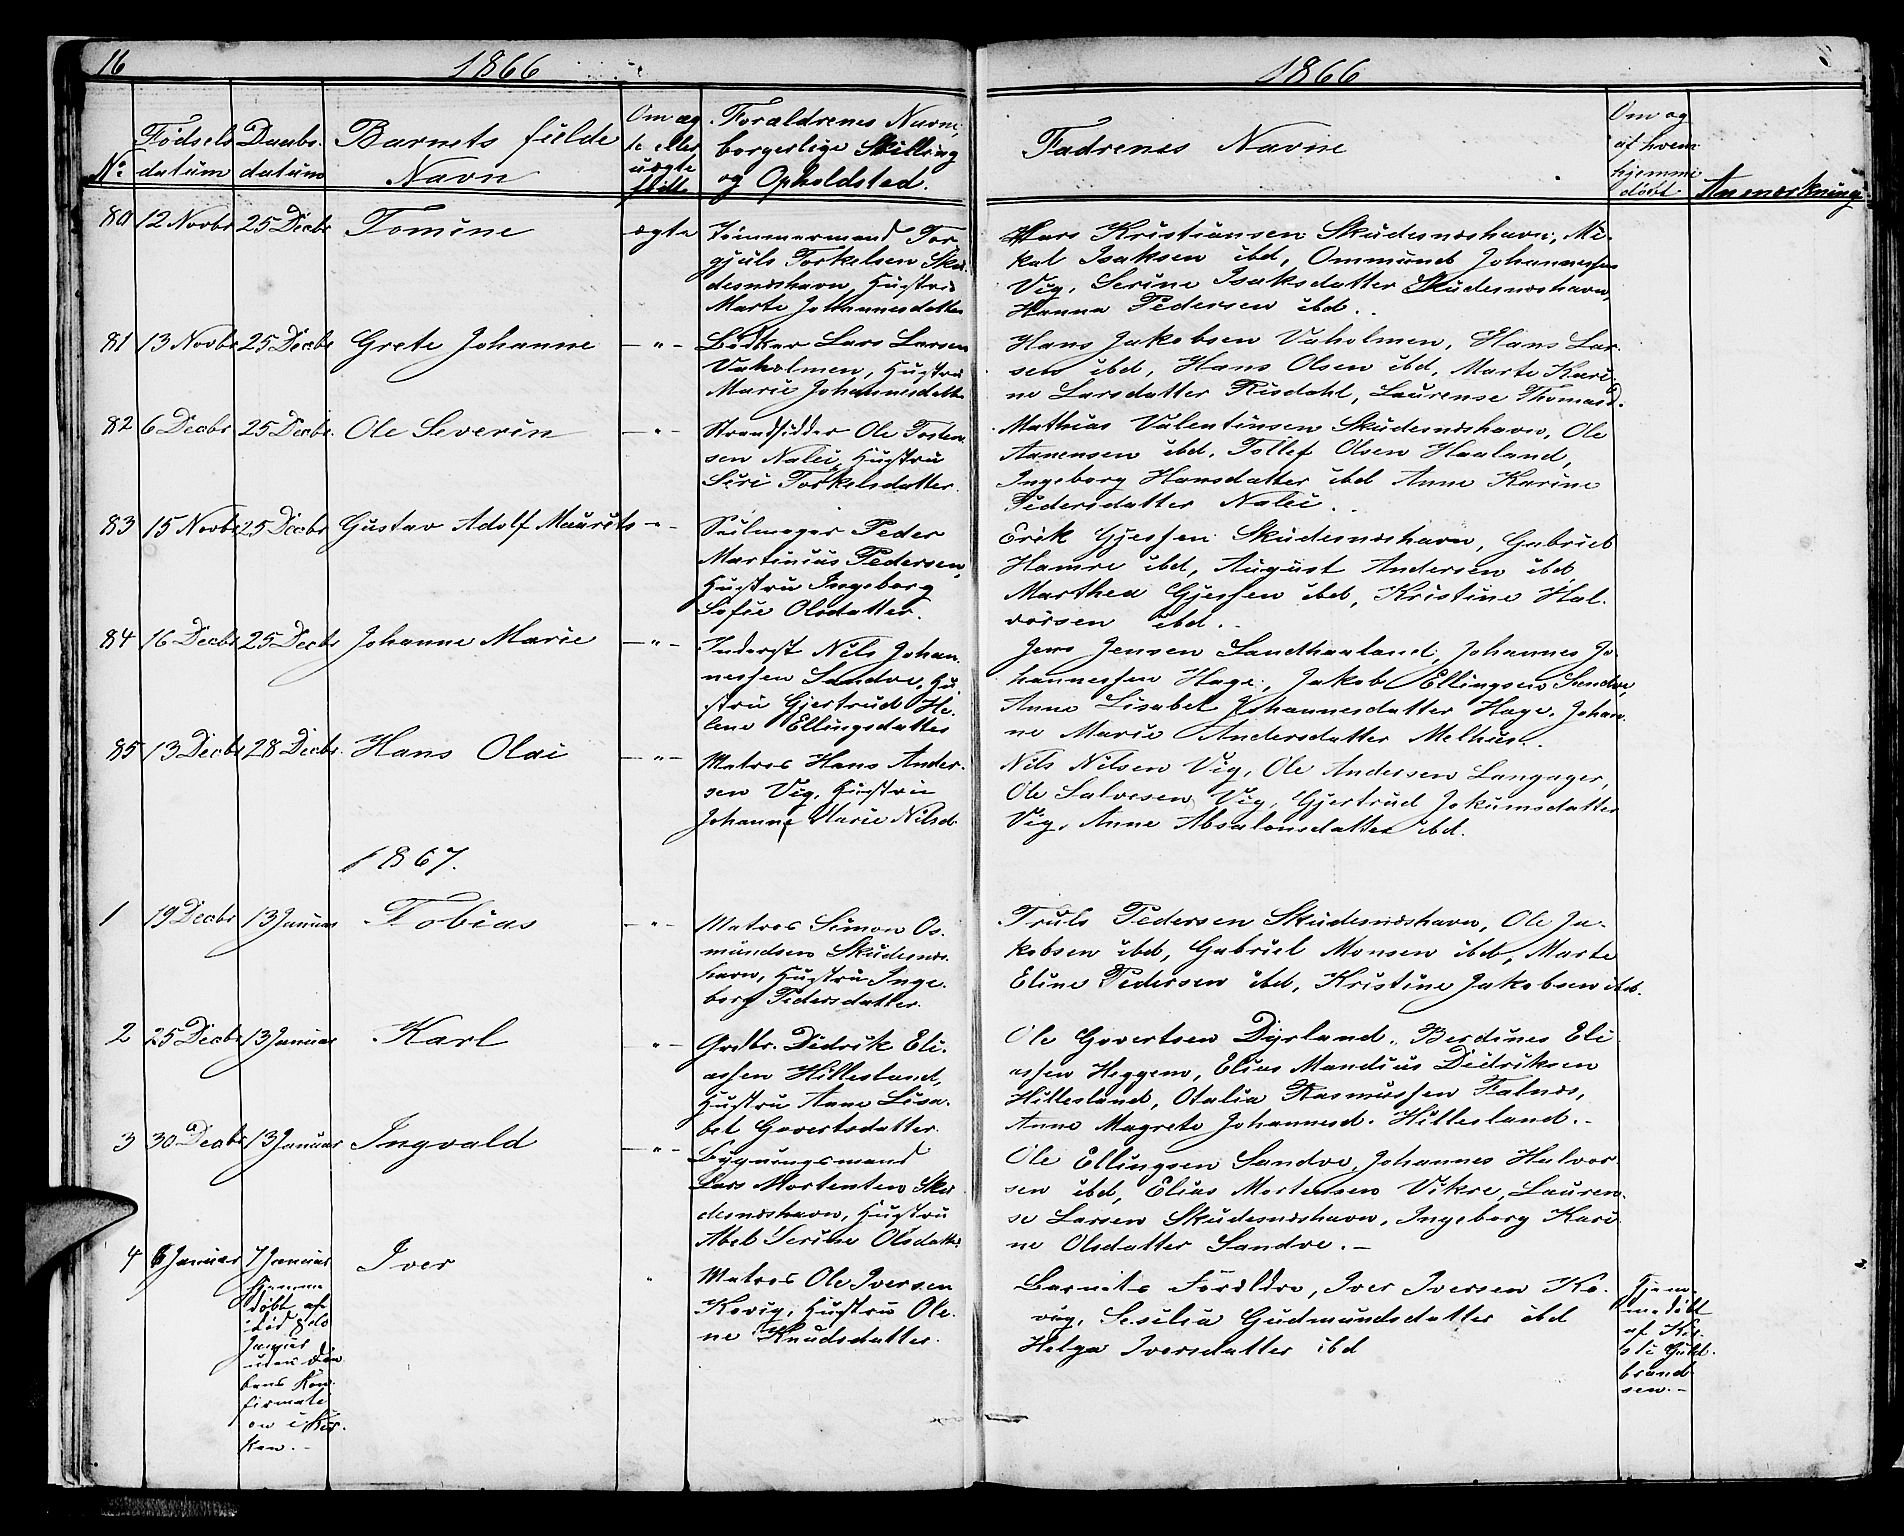 16
1866
1866
No
Fødsels
datum
Daabs.
datum
Barnets fulde
Navn
Om æg
te eller
uægte
født
Foraldrenes Navne,
borgerlige Stilling
og Opholdsted.
Fadrenes Navne
Om og
af hvem
hjemme
døbt
Anmærkning
80
12 Novbr
25 Decbr
Tomine
ægte
Tømmermand Tor
gjuls Torkelsen Sku
desnæshavn, Hustru
Marte Johannesdatter
Lars Kristiansen Skudesnæshavn, Mi
kal Isaksen ibd, Ommund Johannessen
Vig, Serine Isaksdatter Skudesnæshavn,
Hanna Pedersen ibd.
81
13 Novbr
25 Decbr
Grete Johanne
— " —
Bødker Lars Larsen
Vaholmen, Hustru
Marie Johannesdatter
Hans Jakobsen Vaholmen, Hans Lar
sen ibd, Hans Olsen ibd, Marte Kari
ne Larsdatter Risdahl, Laurense Thomasd.
82
6 Decbr
25 Decbr.
Ole Severin
— " —
Strandsidder Ole Tosten
sen Nalei, Hustru
Siri Torkelsdatter.
Mathias Valentinsen Skudesnæshavn, Ole
Aanensen ibd, Tollef Olsen Haaland,
Ingeborg Hansdatter ibd Anne Karine
Pedersdatter Nalei.
83
15 Novbr
25 Decbr
Gustav Adolf Maurits
— " —
Seilmager Peder
Martinius Pedersen,
Hustru Ingeborg
Sofie Olsdatter.
Erik Gjessen Skudesnæshavn, Gabriel
Hamre ibd, August Andersen ibd
Marthea Gjessen ibd, Kristine Hal.
vorsen ibd.
84
16 Decbr
25 Decbr
Johanne Marie
— " —
Inderst Nils Johan.
nessen Sandve, Hu
stru Gjertrud He.
lene Ellingsdatter
Jens Jensen Sandhaaland, Johannes Jo
hannessen Hage, Jakob Ellingsen Sandve,
Anne Lisabet Johannesdatter Hage. Johan
ne Marie Andersdatter Melhus.
85
13 Decbr
28 Decbr.
Hans Olai
— " —
Matros Hans Ander.
sen Vig, Hustru
Johanne Marie Nilsd.
Nils Nilsen Vig, Ole Andersen Langager,
Ole Salvesen Vig, Gjertrud Jokumsdatter
Vig, Anne Absalonsdatter ibd.
1867.
1
19 Decbr
13 Januar
Tobias
— " —
Matros Simon Os.
mundsen Skudesnæs.
havn, Hustru Inge.
borg Pedersdatter.
Truls Pedersen Skudesnæshavn, Ole Ja.
kobsen ibd, Gabriel Monsen ibd, Marte
Eline Pedersen ibd, Kristine Jakobsen ibd.
2
25 Decbr
13 Januar
Karl
" —
Grdbr. Didrik Eli.
assen Hillesland,
Hustru Anne Lisa.
bet Govertsdatter.
Ole Govertsen Dyrland. Berdines Eli
assen Heggem, Elias Mandius Didriksen
Hillesland, Otalia Rasmussen Falnæs,
Anne Magrete Johannesd. Hillesland.
3
30 Decbr
13 Januar
Ingvald
— " —
Bygningsmand
Lars Mortenten Sku
desnæshavn, Hustru
Abel Serine Olsdatter.
Ole Ellingsen Sandve, Johannes Halvor.
sen ibd, Elias Mortensen Vikre, Lauren.
se Larsen Skudesnæshavn, Ingeborg Kari
ne Olsdatter Sandve. —
4
6 Januar
7 Januar
hjemme
døbt af
død 8de
Januar
uden Daa
bens Kon.
firmati
on i Kir.
ken. —
Iver
"
Matros Ole Iversen
Kovig, Hustru Ole.
ne Knudsdatter.
Barnets Foreldre, Iver Iversen Ko.
vig, Sesilia Gudmundsdatter ibd
Helga Iversdatter ibd
Hjem
me døbt
af
Guld.
brand
sen. —